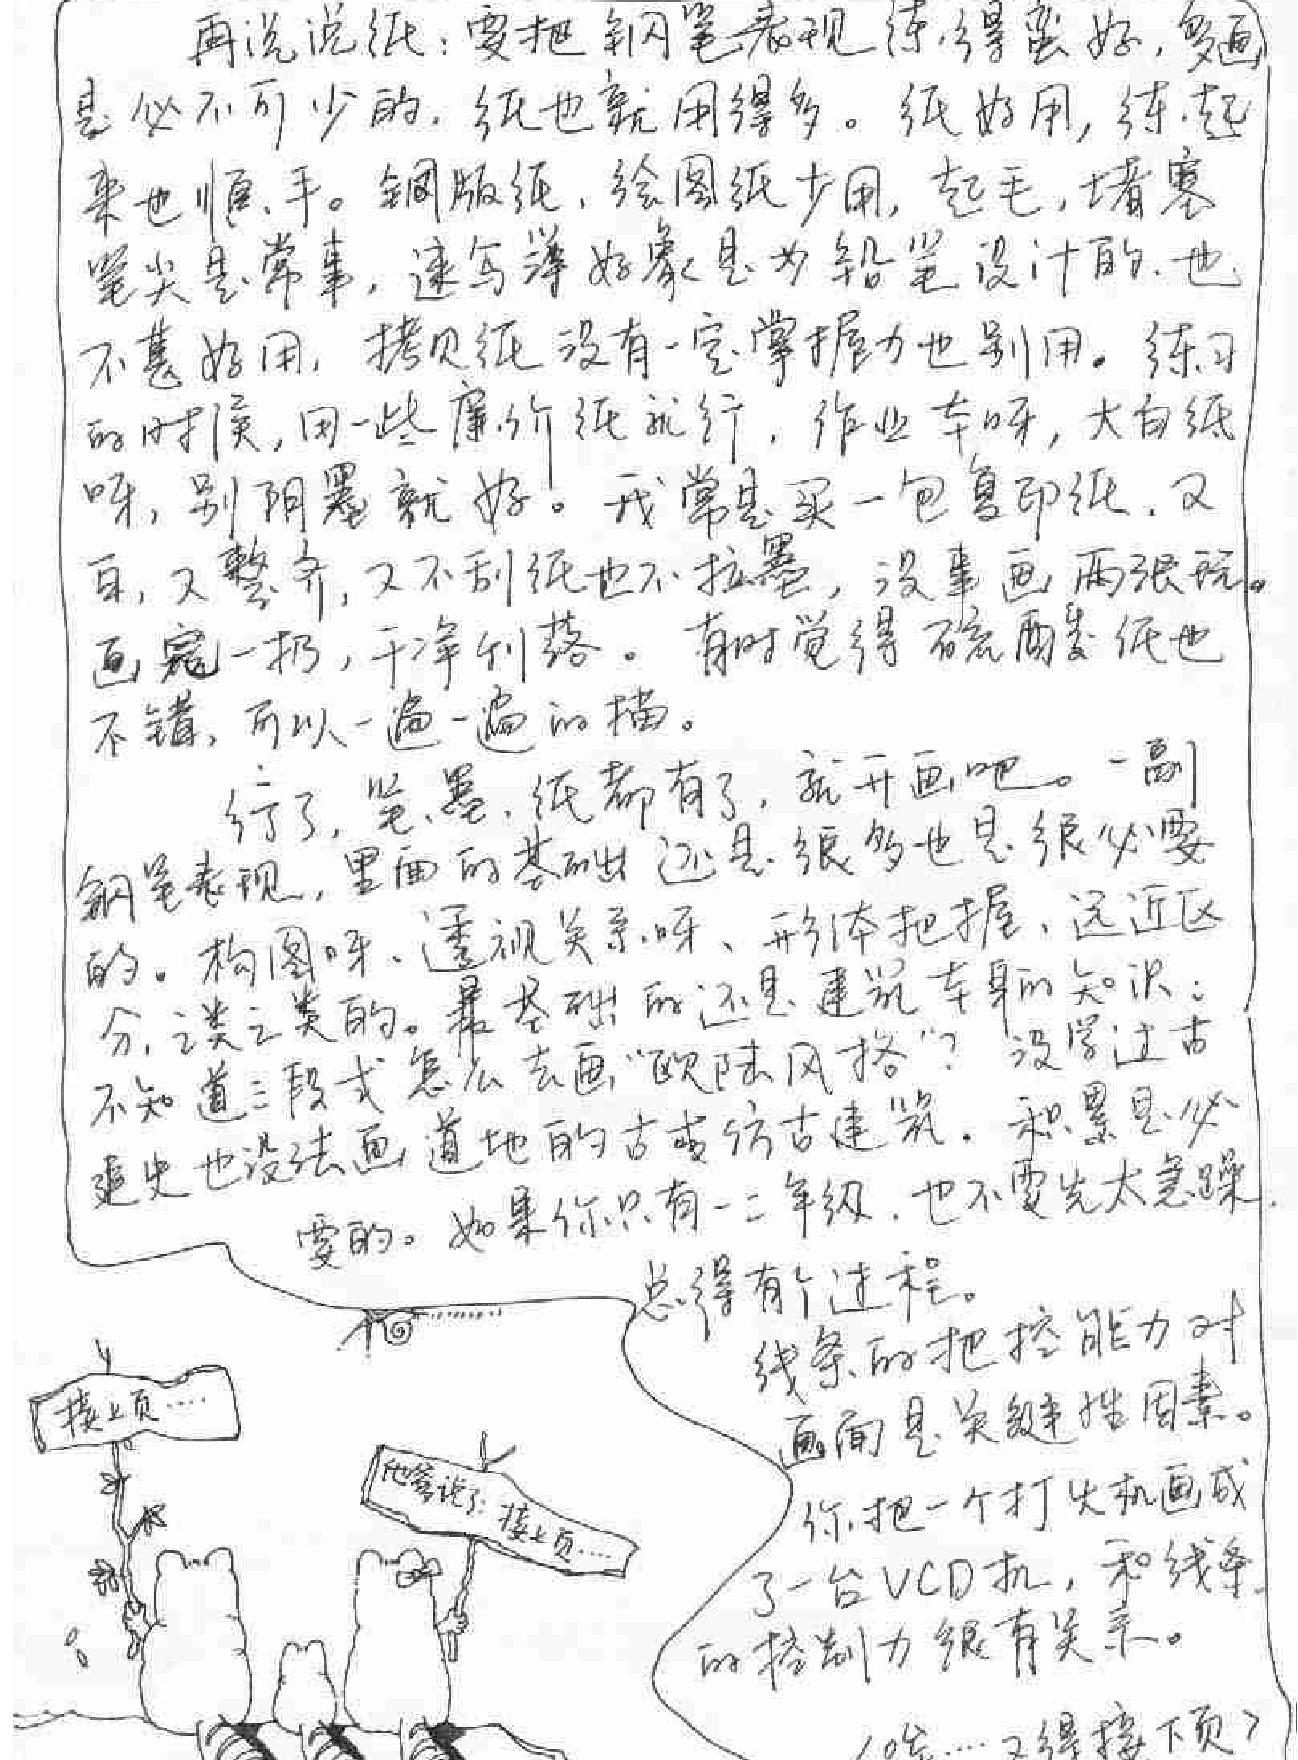 再说说纸：要把钢笔表现练得蛮好，多画
是必不可少的，纸也就用得多。纸好用，练起
来也顺手。铜版纸、绘图纸少用，起毛，堵塞
笔尖是常事，速写薄好象是为铅笔设计的，也
不甚好用，拷贝纸没有一定掌握力也别用。练习
的时候，用一些廉价纸就行，作业本呀，大白纸
呀，别阴墨就好。我常是买一包复印纸，又
白，又整齐，又不刮纸也不拉墨，没事画两张玩。
画完一扔，干净利落。有时觉得硫酸纸也
不错，可以一遍一遍的描。
行了，笔、墨、纸都有了，就开画吧。一副
钢笔表现，里面的基础还是很多也是很必要
的。构图呀、透视关系呀、形体把握、远近区
分，之类之类的。最基础的还是建筑本身的知识：
不知道三段式怎么去画“欧陆风格”？没学过古
建史也没法画道地的古或仿古建筑。积累是必
要的。如果你只有一二年级，也不要先太急躁，
总得有个过程。
线条的把控能力对
画面是关键性因素。
你把一个打火机画成
了一台VCD机，和线条
的控制力很有关系。
（唉……又得接下页）
接上页……
他爹说了：接上页……